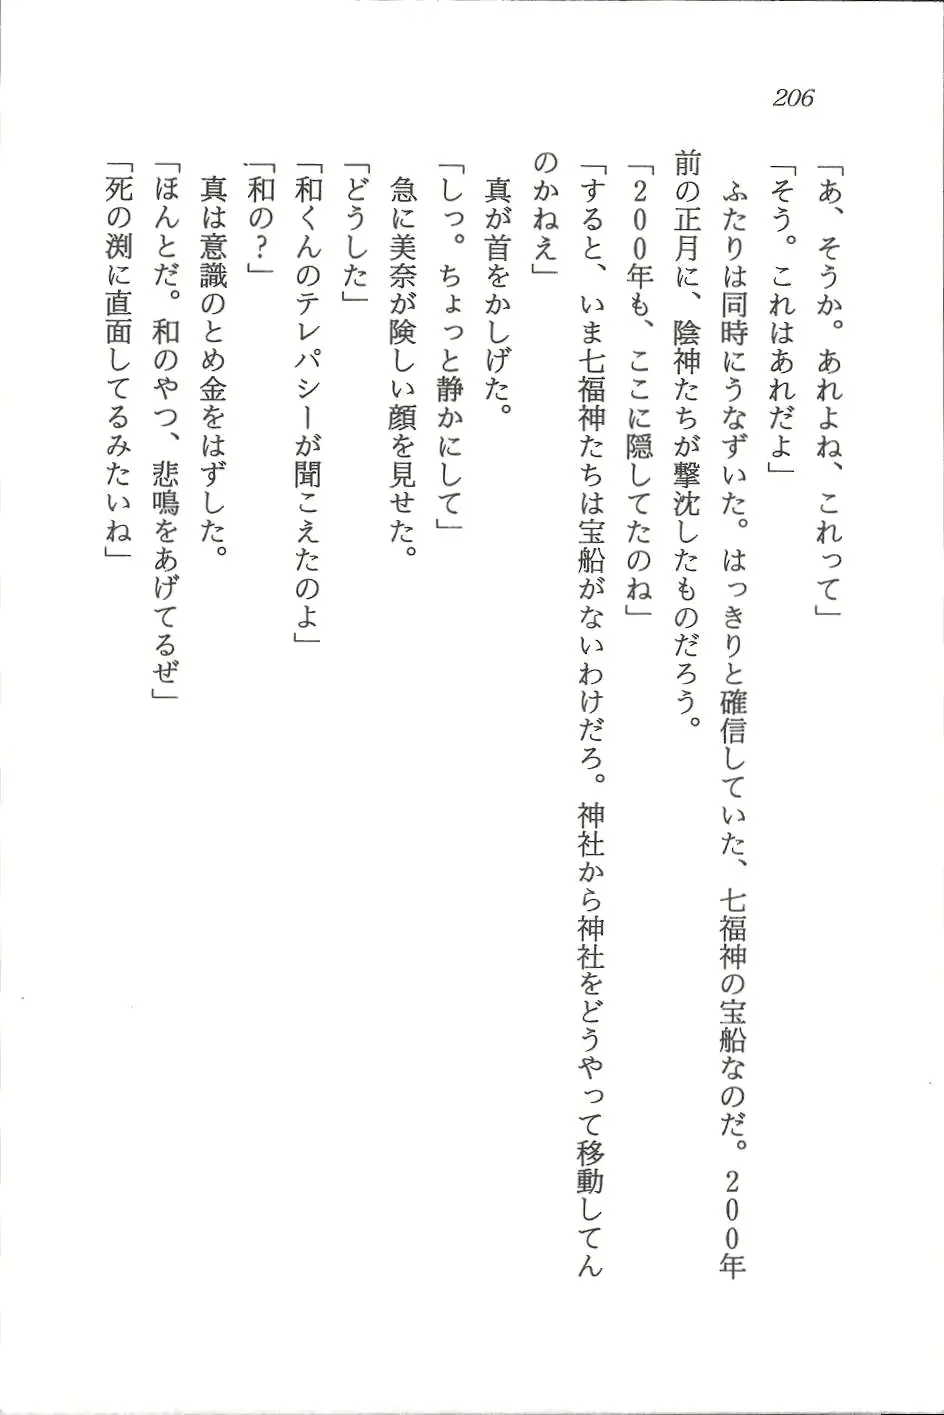 206
「あ、そうか。あれよね、これって」
「そう。これはあれだよ」
　ふたりは同時にうなずいた。はっきりと確信していた、七福神の宝船なのだ。200年
前の正月に、陰神たちが撃沈したものだろう。
「200年も、ここに隠してたのね」
「すると、いま七福神たちは宝船がないわけだろ。神社から神社をどうやって移動してん
のかねえ」
　真が首をかしげた。
「しっ。ちょっと静かにして」
　急に美奈が険しい顔を見せた。
「どうした」
「和くんのテレパシーが聞こえたのよ」
「和の？」
　真は意識のとめ金をはずした。
「ほんとだ。和のやつ、悲鳴をあげてるぜ」
「死の渕に直面してるみたいね」